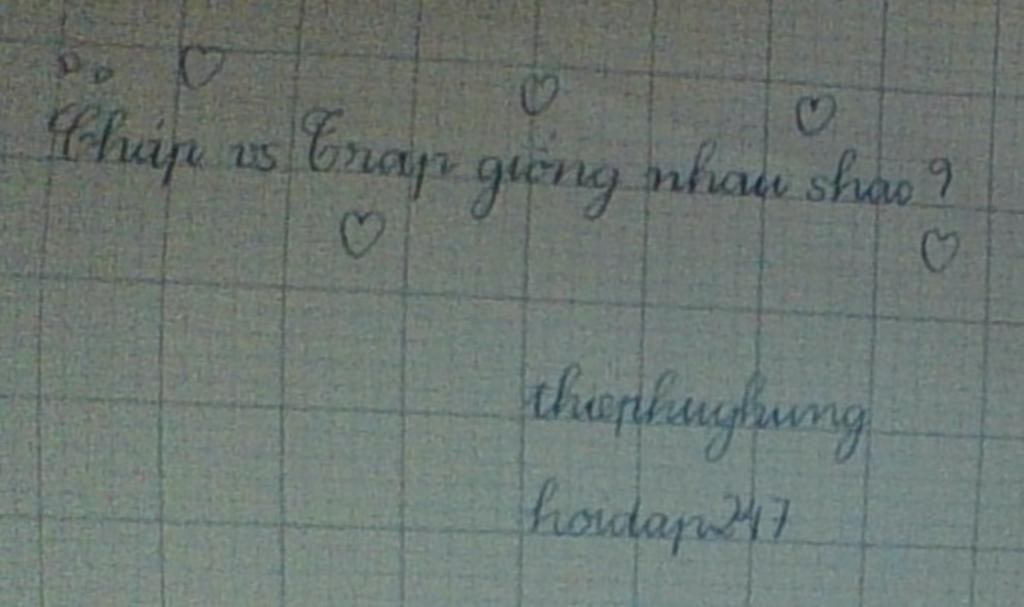 Tháp vs Trap giống nhau shao?
thiephuyhung
hoidap247